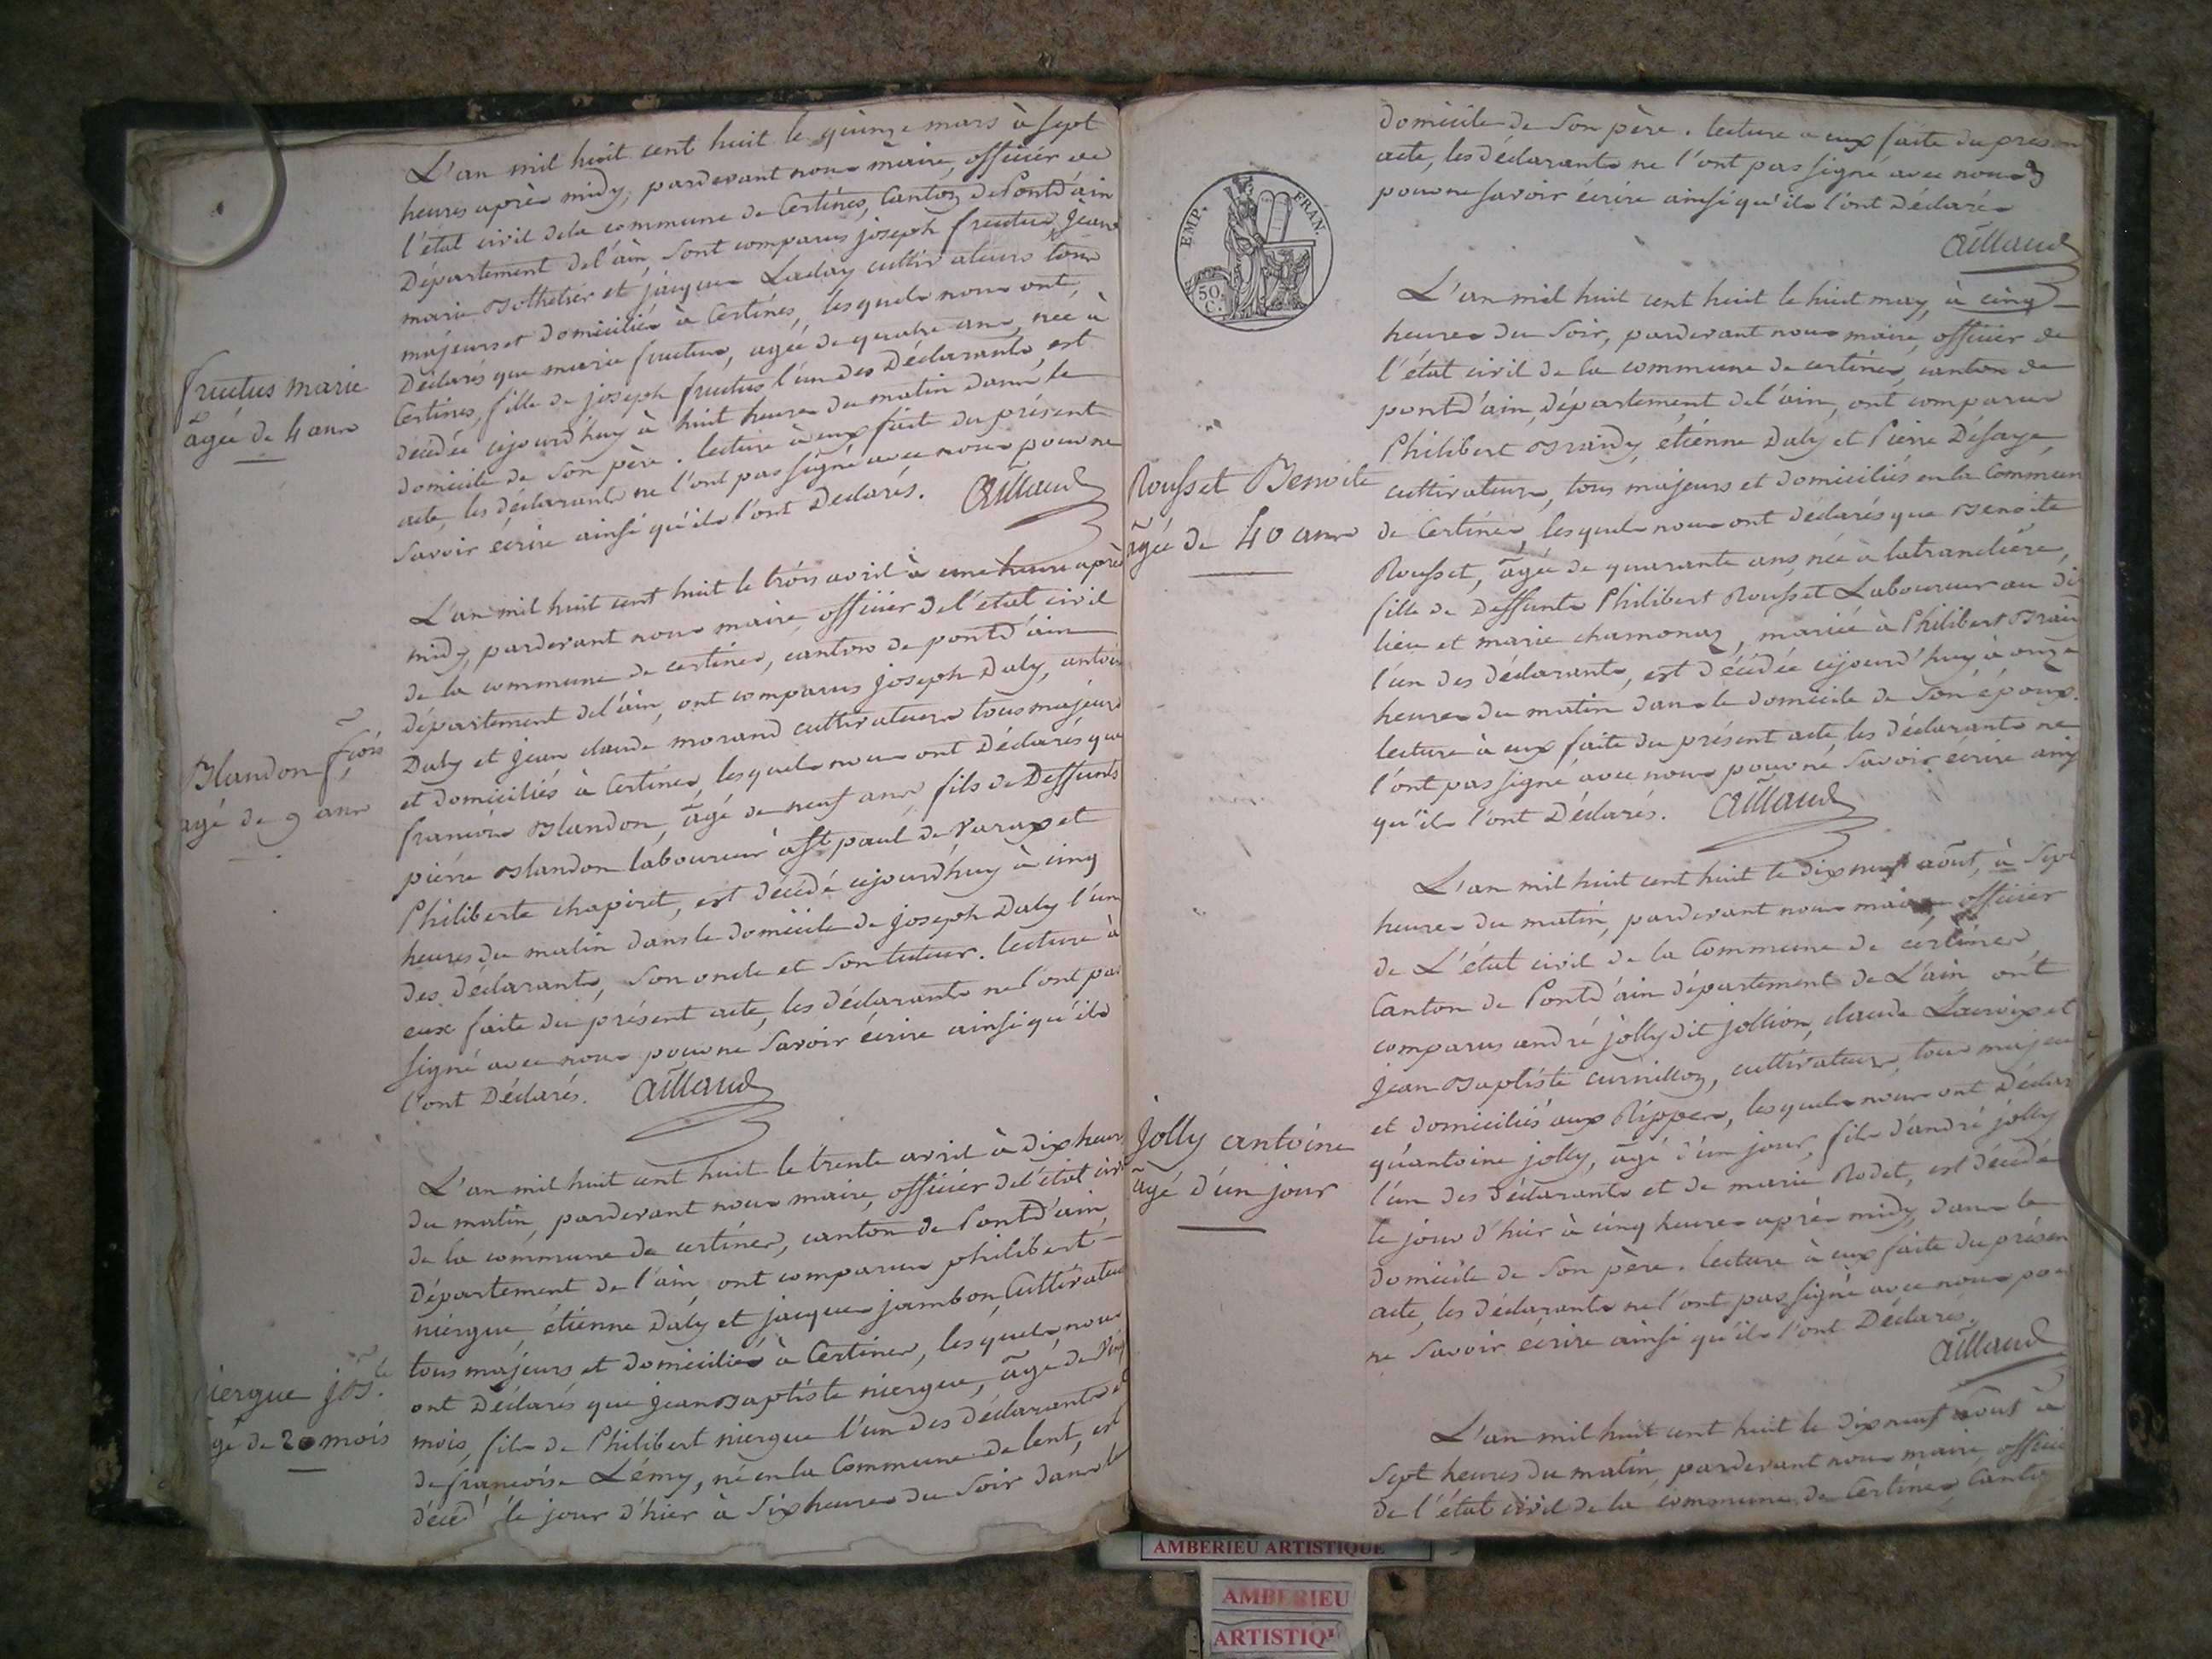 L'an mil huit cent huit le quinze mars à sept
heures après midy, pardevant nous maire, officier de
l'état civil dela commune de Certines, Canton de Pontd'ain
Département del'ain, sont comparus joseph fructus, Jean
marie Bothelier et jacques Laday cultivateurs tous
majeurs et domiciliés à Certines, lesquels nous ont
Déclarés que marie fructus, agée de quatre ans, née à
Certines, fille de joseph fructus l'un des Déclarants, est
décédée cejourd'huy à huit heures du matin dans le
domicile de son père. lecture à eux faite du présent
acte, les déclarants ne l'ont pas signé avec nous pour ne
savoir écrire ainsi qu'ils l'ont Déclarés. Aillaud
fructus marie
âgée de 4 ans
L'an mil huit cent huit le trois avril à une heure après
midy, pardevant nous maire, officier de l'état civil
de la commune de certines, canton de pontd'ain
département del'ain, ont comparus joseph Daly, antoine
Daly et jean claude morand cultivateurs tous majeurs
et domiciliés à Certines, lesquels nous ont Déclarés que
francois Blandon, âgé de neuf ans, fils de Deffunts
pierre Blandon laboureur à St paul de Varax et
Philiberte chapiret, est décédé cejourd'huy à cinq
heures du matin dans le domicile de joseph Daly l'un
des déclarants, son oncle et son tuteur. lecture à
eux faite du présent acte, les déclarants ne l'ont pas
signé avec nous pour ne savoir écrire ainsi qu'ils
l'ont Déclarés. Aillaud
Blandon fçois
agé de 9 ans
L'an mil huit cent huit le trente avril à dix heures
du matin, pardevant nous maire, officier de l'état civil
de la commune de certines, canton de Pontd'ain,
Département de l'ain, ont comparus philibert
niergue, étienne Daly et jacques jambon Cultivateurs
tous majeurs et domiciliés à Certines, lesquels nous
ont Déclarés que jean Baptiste niergue, âgé de vingt
mois, fils de Philibert niergue l'un des déclarants et
de françoise Lémy, né en la Commune de lent, est
décédé le jour d'hier à Six heures du Soir dans le
niergue jn Bte
gé de 20 mois
domicile de son père. lecture à eux faite du présen
acte, les déclarants ne l'ont pas signé avec nous
pour ne savoir écrire ainsi qu'ils l'ont Déclarés
Aillaud
EMP. FRAN.
50. C.
L'an mil huit cent huit le huit may, à cinq
heures du Soir, pardevant nous maire, officier de
l'état civil de la commune de certines, canton de
pontd'ain, département del'ain, ont comparus
Philibert Brandy, étienne Daly et Pierre Désaye,
cultivateurs, tous majeurs et domiciliés en la Commun
de Certines, lesquels nous ont déclarés que Benoite
Rousset, âgée de quarante ans, née à latranclière,
fille de Deffunts Philibert Rousset Laboureur au dit
lieu et marie chamonaz, mariée à Philibert Bran
l'un des déclarants, est décédée cejourd'huy à onze
heures du matin dans le domicile de Son époux.
lecture à eux faite du présent acte, les déclarants ne
l'ont pas signé avec nous pour ne savoir écrire ainsy
qu'ils l'ont Déclarés. Aillaud
Rousset Benoite
âgée de 40 ans
L'an mil huit cent huit le dix neuf août, à Sept
heures du matin, pardevant nous maire, officier
de L'état civil de la Commune de certines,
Canton de Pontd'ain département de L'ain ont
comparus andré jolly dit jollion, claude Lacroix et
jean Baptiste curnilloz, cultivateurs, tous majeu
et domiciliés aux Rippes, lesquels nous ont Déclar
qu'antoine jolly, âgé d'un jour, fils d'andré jolly
l'un des déclarants et de marie Rodet, est décédé
le jour d'hier à cinq heures après midy, dans le
domicile de Son père. lecture à eux faite du présen
acte, les déclarants ne l'ont pas signé avec nous pour
ne Savoir écrire ainsi qu'ils l'ont Déclarés.
Aillaud
Jolly antoine
âgé d'un jour
L'an mil huit cent huit le dix neuf août à
Sept heures du matin, pardevant nous maire, officie
de l'état civil de la commune de Certines, Canto
AMBERIEU ARTISTIQUE
AMBERIEU
ARTISTIQU